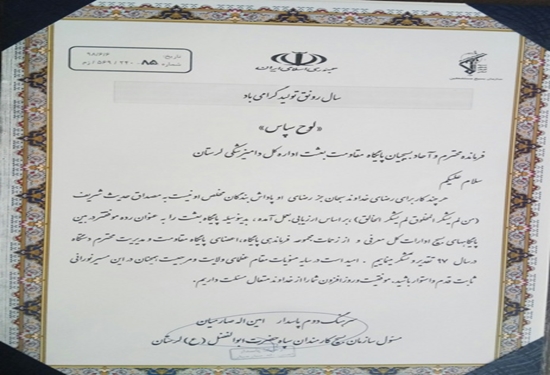 تاریخ: ۹۸/۶/۶
جمهوری اسلامی ایران
سال رونق تولید گرامی باد
«لوح سپاس»
فرمانده محترم و آحاد بسیجیان پایگاه مقاومت بعثت اداره کل دامپزشکی لرستان
سلام علیکم
هر چند کار برای رضای خداوند سبحان جز رضای او پاداش بندگان مخلص او نیست به مصداق حدیث شریف
(من لم یشکر المخلوق لم یشکر الخالق) بر اساس ارزیابی بعمل آمده، بدینوسیله پایگاه بعثت را به عنوان رده موفقتر در بین
پایگاههای بسیج ادارات کل معرفی و از زحمات مجموعه فرماندهی پایگاه، اعضای پایگاه مقاومت و مدیریت محترم دستگاه
در سال ۹۷ تقدیر و تشکر مینماییم. امید است در سایه منویات مقام عظمای ولایت و مرجعیت همچنان در این مسیر نورانی
ثابت قدم و استوار باشید. موفقیت روز افزون شما را از خداوند متعال مسئلت داریم.
سرهنگ دوم پاسدار امین اله صارمیان
مسئول سازمان بسیج کارمندان سپاه حضرت ابوالفضل (ع) لرستان